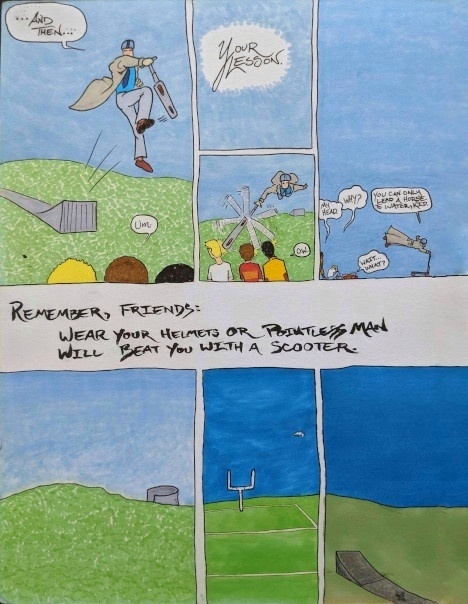 ...AND
THEN...
YOUR
LESSON.
UM.
OW.
MY
HEAD.
WHY?
YOU CAN ONLY
LEAD A HORSE
WATER, KID.
WAIT...
WHAT?
REMEMBER, FRIENDS:
WEAR YOUR HELMETS OR POINTLESS MAN
WILL BEAT YOU WITH A SCOOTER.